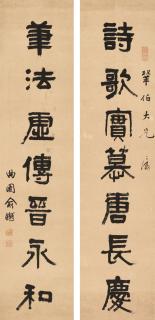 詩歌實慕唐長慶
筆法虛傳晉永和
曲園俞樾